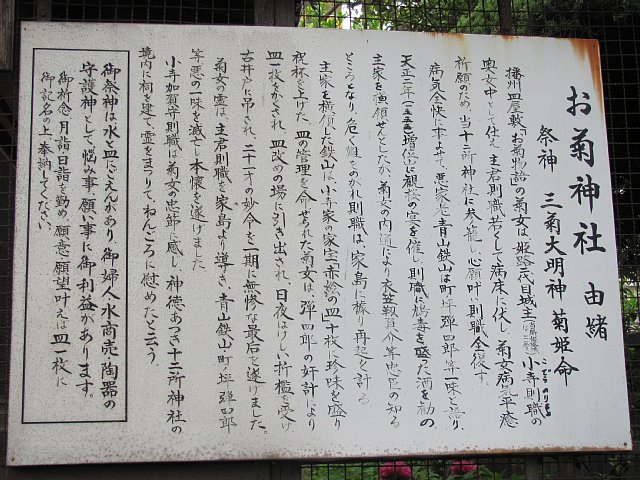 お菊神社 由緒
祭神 三菊大明神 菊姫命
播州皿屋敷、お菊物語の菊女は、姫路代目城主小寺則職の
こでらのりもと
奥女中として仕え、主君則職若くして病床に伏し、菊女病気平癒
祈願のため、当十二所神社に参籠し心願叶い則職全復す。
病気全快に事よせて、悪家老青山鉄山は町坪弾四郎等一味と語り、
天正二年増位山に観桜の宴を催し、則職に鴆毒を盛た酒を勧め
主家を横領せんとしたが、菊女の内通により衣笠元信等忠臣の知る
ところとなり、危く難をのがれ則職は、家島に據り再起を計る
主家を横領した鉄山は、小寺家の家宝赤絵の皿十枚に珍味を盛り
祝杯を上げた。皿の管理を命ぜられた菊女は、弾四郎の奸計により
皿一枚をかくされ、皿改めの場に引き出され、日夜はげしい折檻を受け
古井戸に吊され、二十一才の妙令を一期に無惨な最后を遂げました。
菊女の霊は、主君則職を家島より導き、青山鉄山町坪弾四郎
等悪の一味を滅亡し本懐を遂げました
小寺加賀守則職は菊女の忠節に感じ、神徳あつき十二所神社の
境内に祠を建て霊をまつりて、ねんごろに慰めたと云う。
御祭神は水と皿にえんがあり、御婦人水商売陶器の
守護神として、悩み事、願い事に御利益があります。
御祈念月詣日詣を勤め、願意願望叶えば皿一枚に
御記名の上、奉納してください。